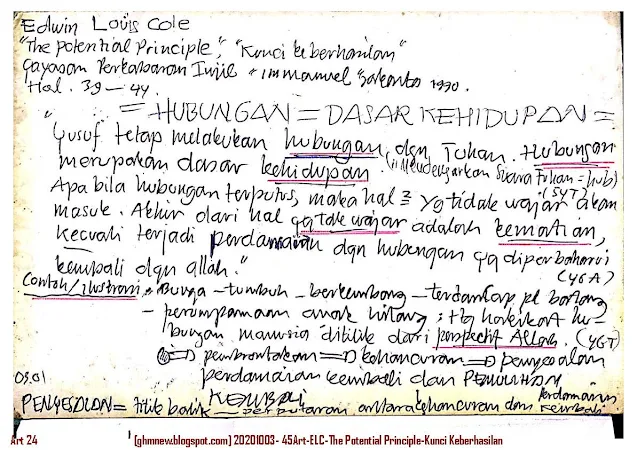 Edwin Louis Cole
"The potential Principle", "Kunci keberhasilan"
Yayasan Perkabaran Injil "Immanuel" Jakarta 1990.
Hal. 39 - 44.
= HUBUNGAN = DASAR KEHIDUPAN =
"Yusuf tetap melakukan hubungan dgn Tuhan. Hubungan
merupakan dasar kehidupan. (ii Mendengarkan Suara Tuhan = hub)
(SYT)
Apa bila hubungan terputus, maka hal ² yg tidak wajar akan
masuk. Akhir dari hal yg tak wajar adalah kematian,
kecuali terjadi perdamaian dgn hubungan yg diperbaharui
kembali dgn allah."
(YGA)
Contoh/ilustrasi • Bunga - tumbuh - berkembang - terdantap pd batang
- perumpamaan anak hilang; ttg hakikat hu-
bungan manusia ditilik dari perspectif Allah. (YGT)
pembrontakan => kehancuran => penyesalan
perdamaian kembali dan PEMULIHAN
05.01
KEMBALI
PENYESALAN = titik balik - perputaran antara kehancuran dan Perdamaian
kembali.
Art 24
[ghmnew.blogspot.com] 20201003- 45Art-ELC-The Potential Principle-Kunci Keberhasilan